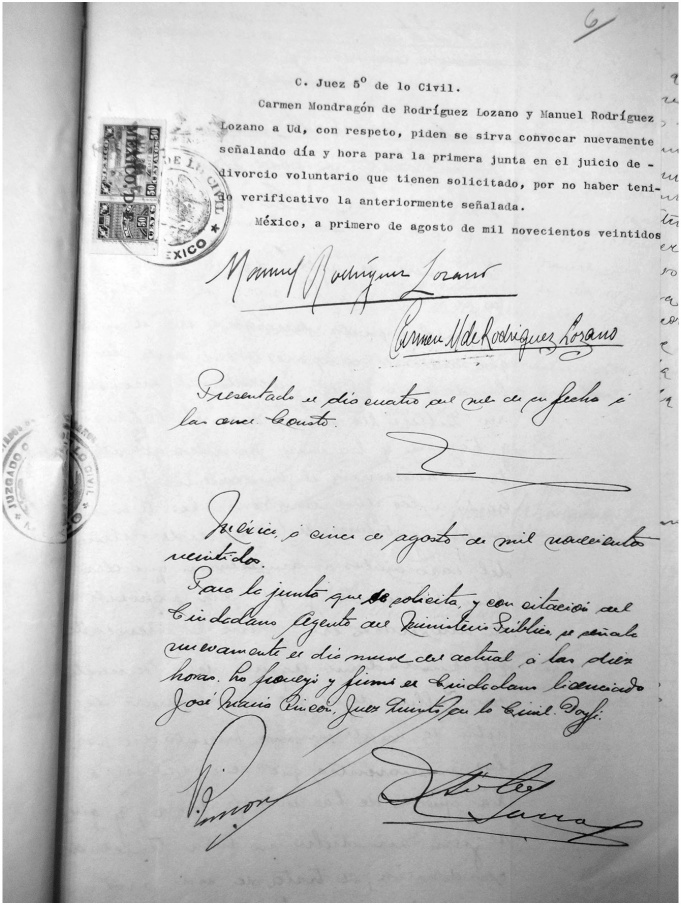 6
C. Juez 5º de lo Civil.
Carmen Mondragón de Rodríguez Lozano y Manuel Rodríguez
Lozano a Ud, con respeto, piden se sirva convocar nuevamente
señalando día y hora para la primera junta en el juicio de -
divorcio voluntario que tienen solicitado, por no haber teni-
do verificativo la anteriormente señalada.
México, a primero de agosto de mil novecientos veintidos
Manuel Rodríguez Lozano
Carmen M de Rodriguez Lozano
Presentado el dia cuatro del mes de su fecha á
las once. Consta.
México, á cinco de agosto de mil novecientos
veintidos.
Para la junta que se solicita, y con citación del
Ciudadano Agente del Ministerio Público, se señala
nuevamente el dia nueve del actual, á las diez
horas. Lo proveyó y firmó el Ciudadano licenciado
José María Rincón, Juez Quinto de lo Civil. Doyfé.
Rincón
50 CENTAVOS 50
MEXICO, D.
DE LO CIVIL
MEXICO
JUZGADO LO CIVIL